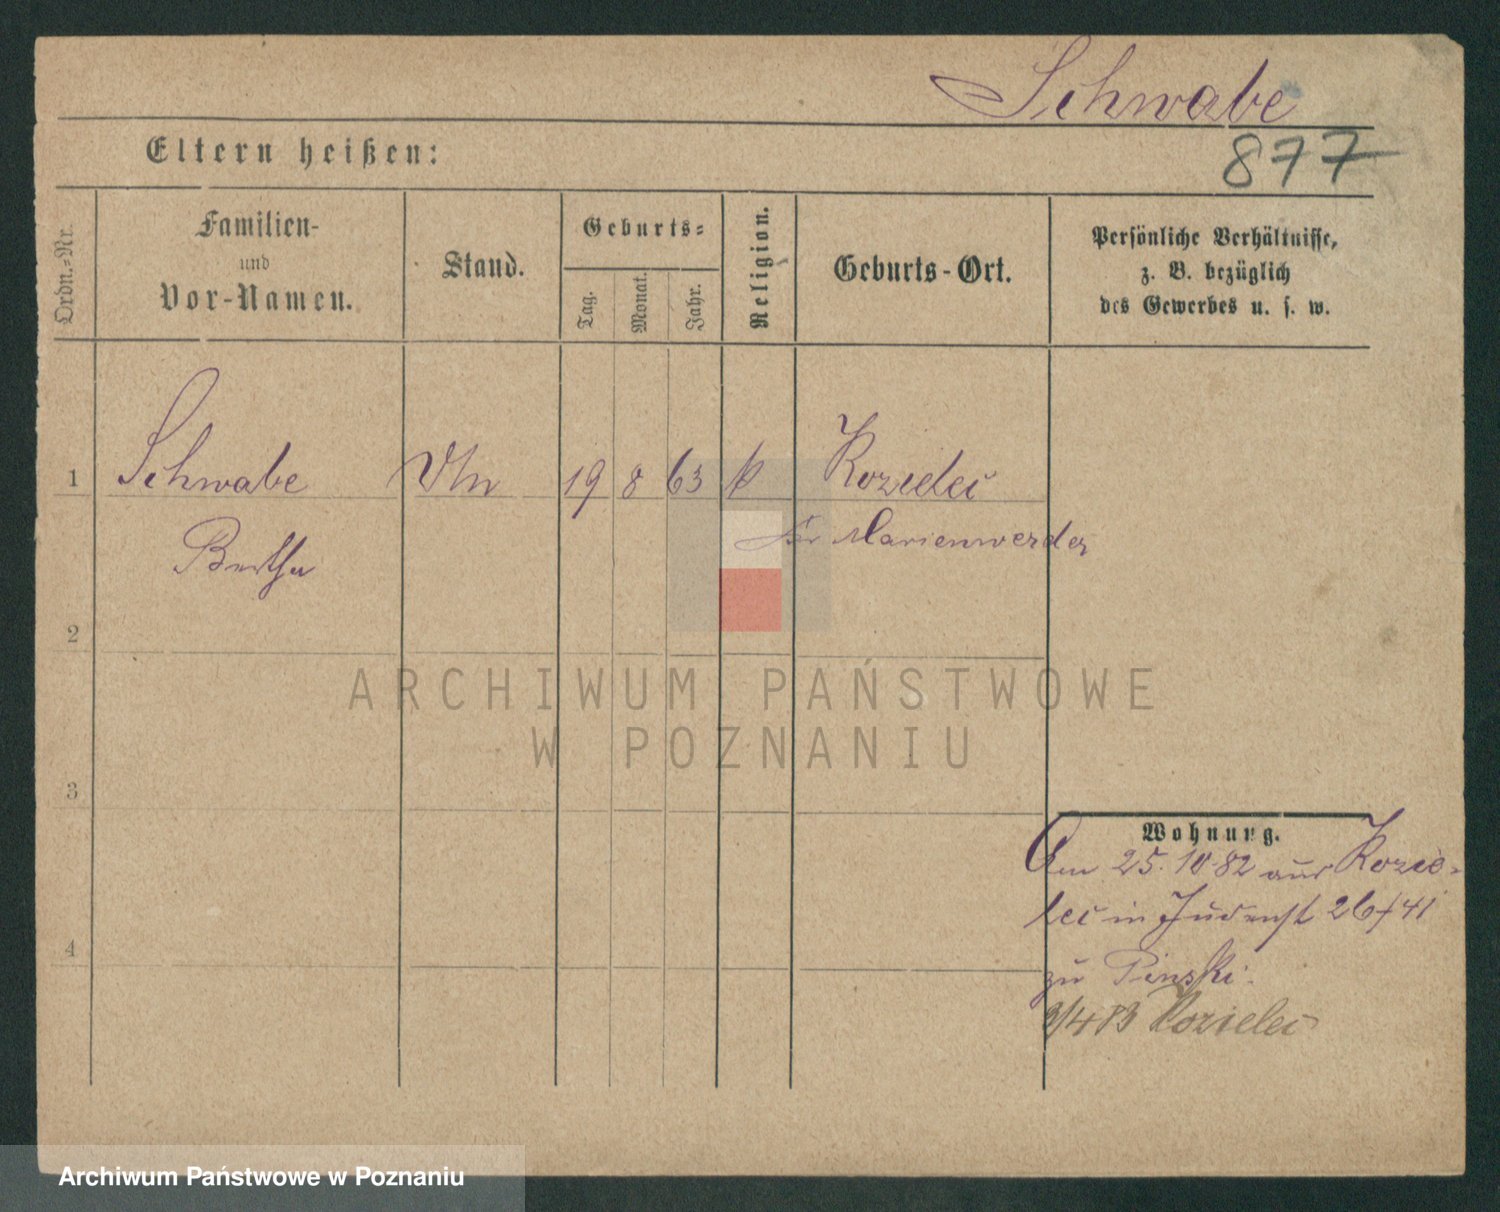 Schwabe
877
Eltern heißen:
Ordn.-Nr.
Familien-
und
Vor-Namen.
Stand.
Geburts-
Tag.
Monat.
Jahr.
Religion.
Geburts-Ort.
Persönliche Verhältnisse,
z. B. bezüglich
des Gewerbes u. s. w.
1 Schwabe 19 8 63 k Kozielec
Bertha Marienwerder
2
3
4
ARCHIWUM PAŃSTWOWE
W POZNANIU
Wohnung.
Am 25.10.82 aus Kozie-
lec in Judenst 26/41
zu Pinski.
3/4 83 Kozielec
Archiwum Państwowe w Poznaniu